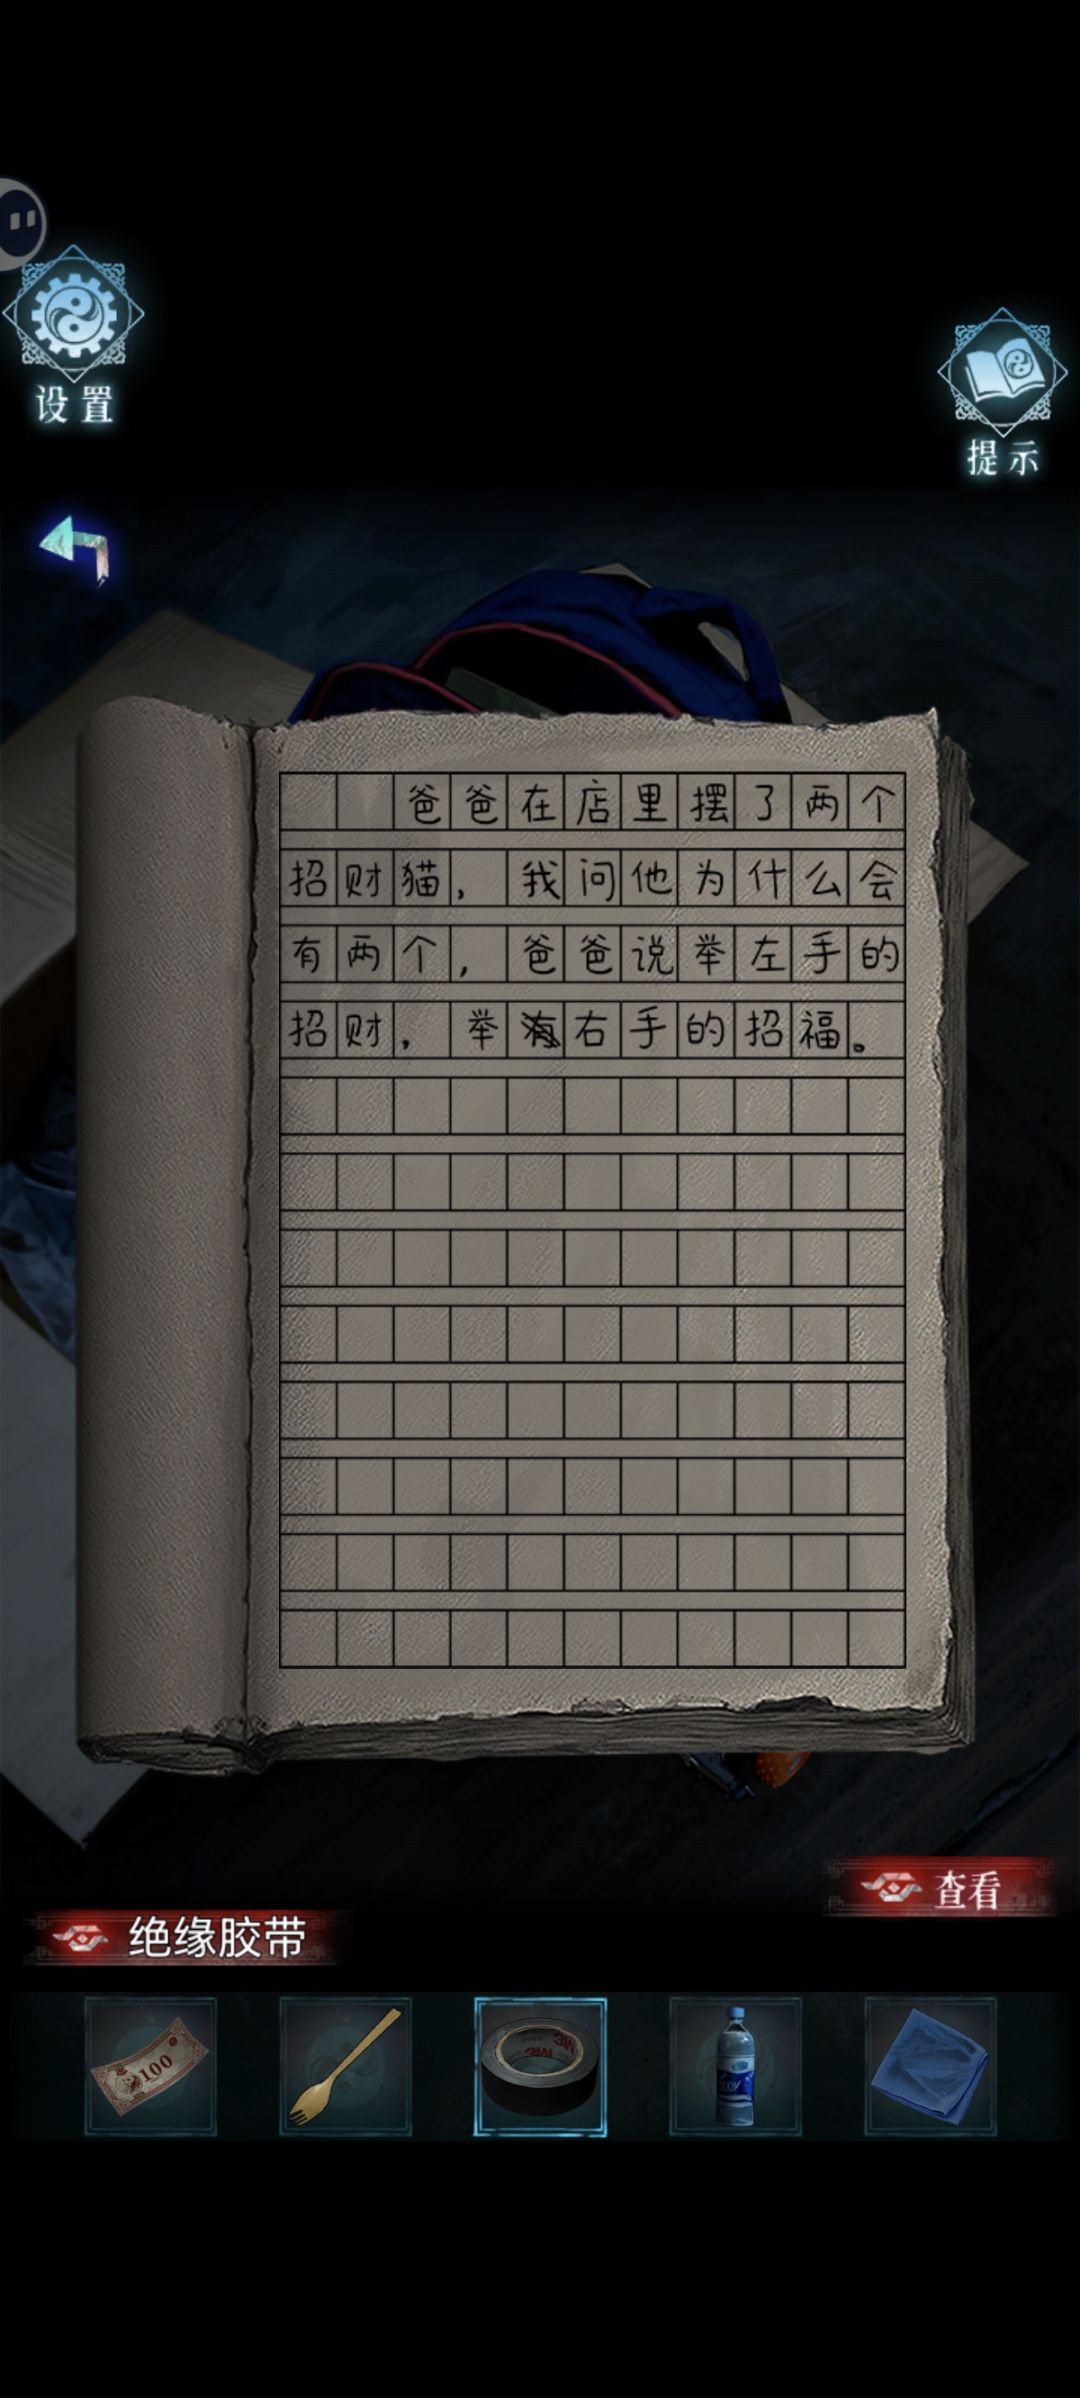 设置
提示
爸爸在店里摆了两个
招财猫，我问他为什么会
有两个，爸爸说举左手的
招财，举右手的招福。
查看
绝缘胶带
100
3M
3M